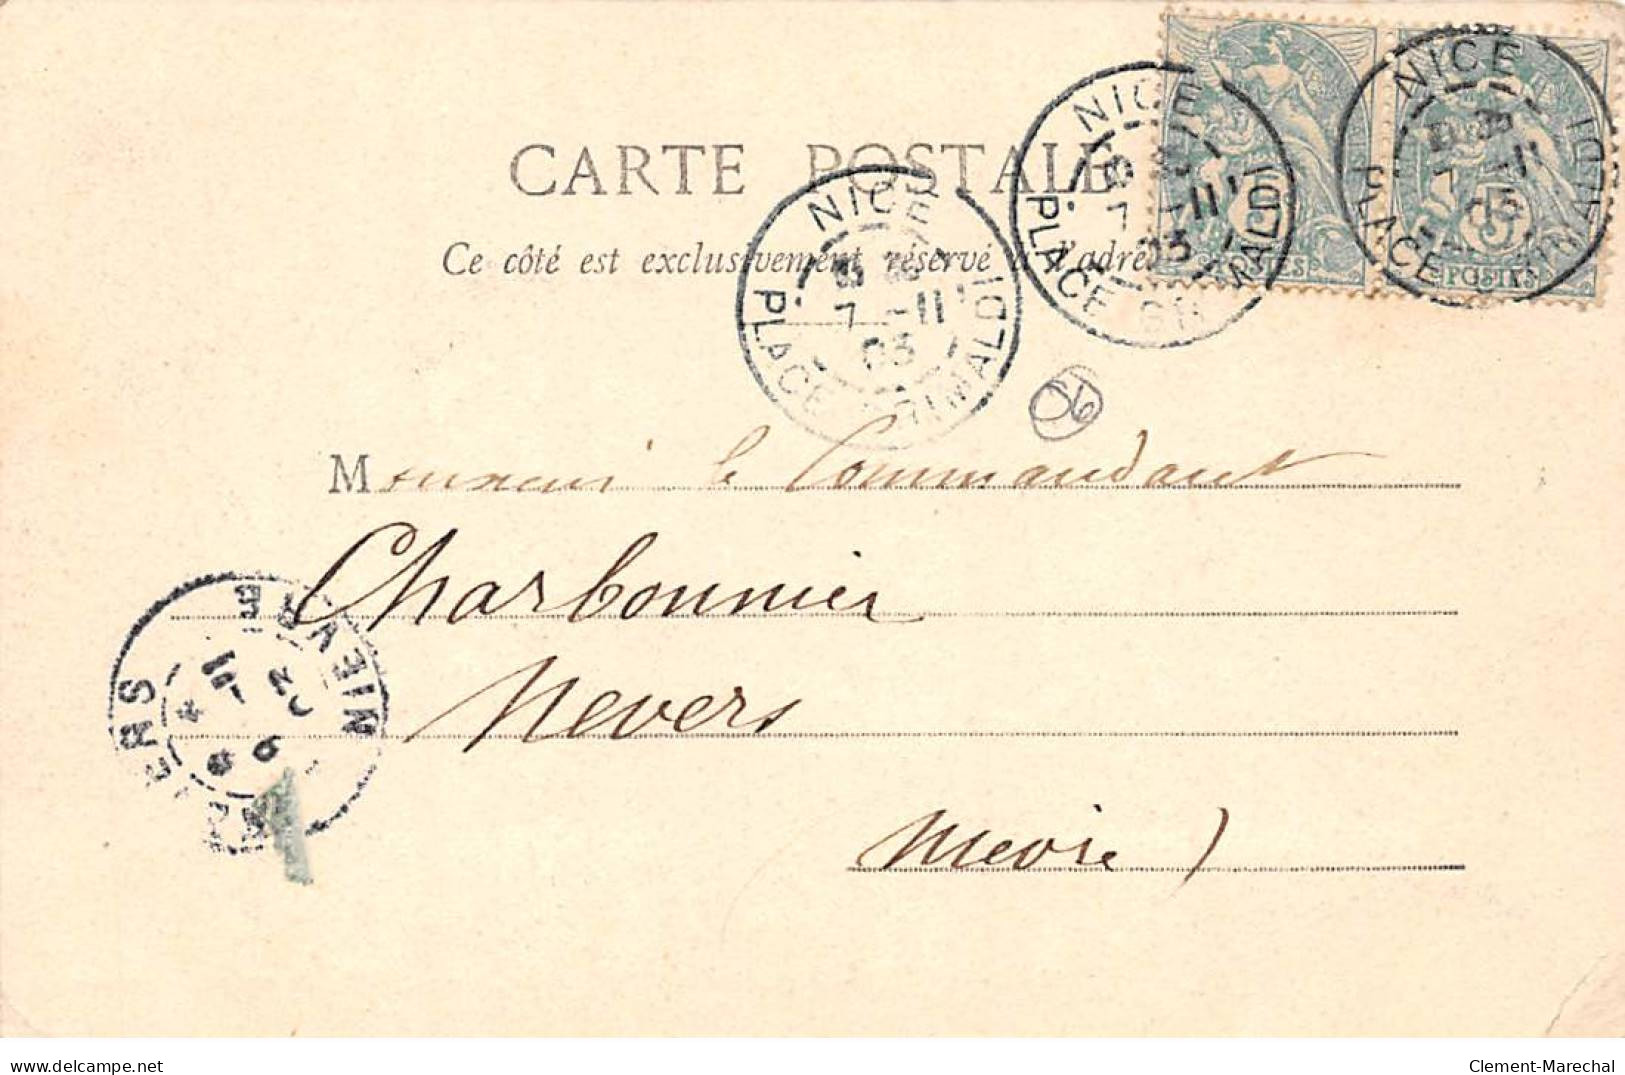 CARTE POSTALE
Ce côté est exclusivement réservé à l'adresse
NICE
PLACE GRIMALDI
7 -11
03
NICE
PLACE GRIMALDI
7 -11
03
NICE
PLACE GRIMALDI
7 -11
03
5
POSTES
5
POSTES
56
Monsieur le Commandant
Charbonnier
Nevers
NEVERS
NIEVRE
Nievre)
delcampe.net
Clement-Marechal